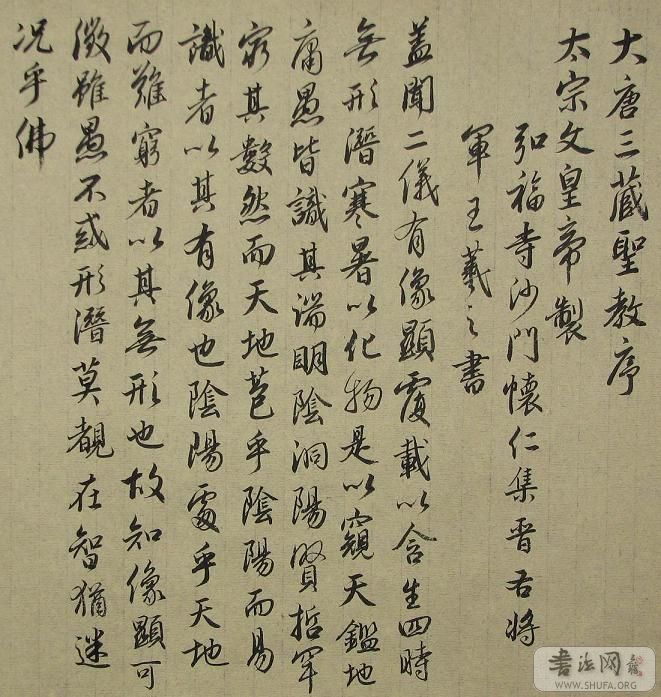 大唐三藏聖教序
太宗文皇帝製
弘福寺沙門懷仁集晉右將
軍王羲之書
蓋聞二儀有像顯覆載以含生四時
無形潛寒暑以化物是以窺天鑑地
庸愚皆識其端明陰洞陽賢哲罕
窮其數然而天地苞乎陰陽而易
識者以其有像也陰陽處乎天地
而難窮者以其無形也故知像顯可
徵雖愚不惑形潛莫覩在智猶迷
况乎佛
書法网
WWW.SHUFA.ORG